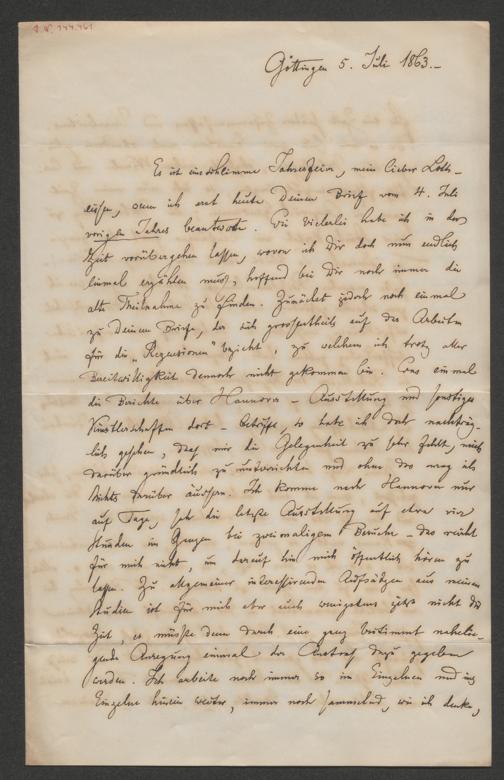 I. N. 144.461
Göttingen 5. Juli 1863.–
Es ist eine schlimme Jahresfeier, mein lieber Loth-
eißen, wenn ich erst heute Deinen Brief vom 4. Juli
vorigen Jahres beantworte. Wie Vielerlei habe ich in der
Zeit vorübergehen lassen, wovon ich Dir doch nun endlich
einmal erzählen muß, hoffend bei Dir noch immer die
alte Theilnahme zu finden. Zunächst jedoch noch einmal
zu Deinem Briefe, der sich großentheils auf das Arbeiten
für die „Rezensionen“ bezieht, zu welchem ich trotz aller
Bereitwilligkeit dennoch nicht gekommen bin. Was einmal
die Berichte über Hannover – Ausstellung und sonstiges
Künstlerschaffen dort – betrifft, so habe ich doch nachträg-
lich gesehen, daß mir die Gelegenheit zu sehr fehlt, mich
darüber gründlich zu unterrichten und ohne das mag ich
Nichts darüber äussern. Ich komme nach Hannover nur
auf Tage, sah die letzte Ausstellung auf etwa vier
Stunden im Ganzen bei zweimaligem Besuche – das reicht
für mich nicht, um darauf hin mich öffentlich hören zu
lassen. Zu allgemeiner interessirenden Aufsätzen aus meinen
Studien ist für mich aber auch wenigstens jetzt nicht die
Zeit, es müßte denn durch eine ganz bestimmt nahelie-
gende Anregung einmal der Anstoß dazu gegeben
werden. Ich arbeite noch immer so im Einzelnen und ins
Einzelne hinein weiter, immer noch sammelnd, wie ich denke,